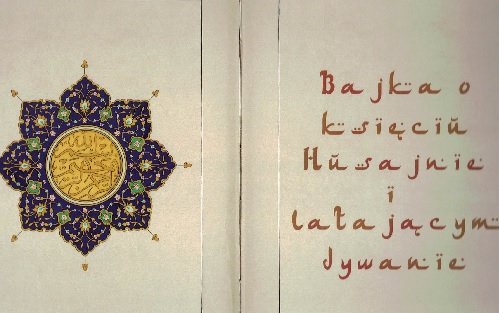 Bajka o
księciu
Husajnie
i
latającym
dywanie